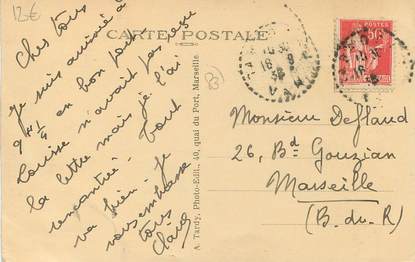 12€
CARTE POSTALE
Chers tous
Je suis arrivée à
9h 1/4 en bon port.
Louise n'avait pas reçu
la lettre mais je l'ai
rencontrée. Tout
va bien. Je
vous embrasse
tous
A. Tardy, Photo-Edit., 40, quai du Port, Marseille
POSTES
50c
VAR
Monsieur
26, Bd Gouzian
Marseille
(B. du R)